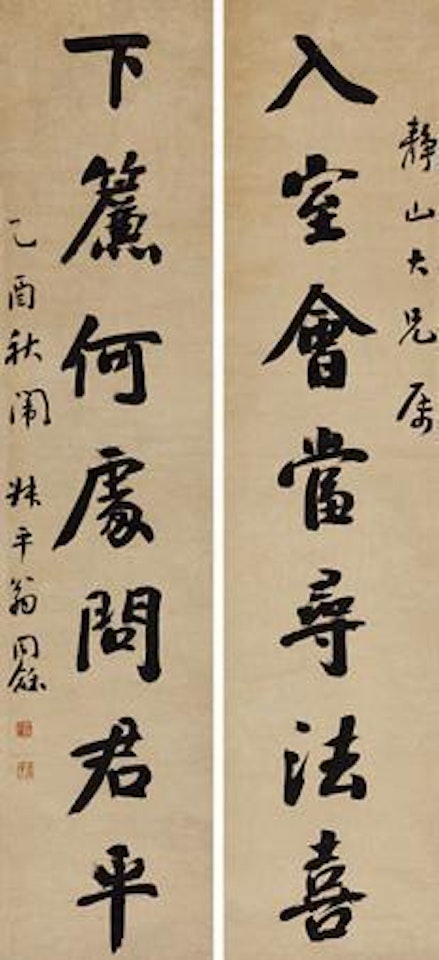 靜山大兄屬
入室會當尋法喜
下簾何處問君平
乙酉秋闈
叔平翁同龢